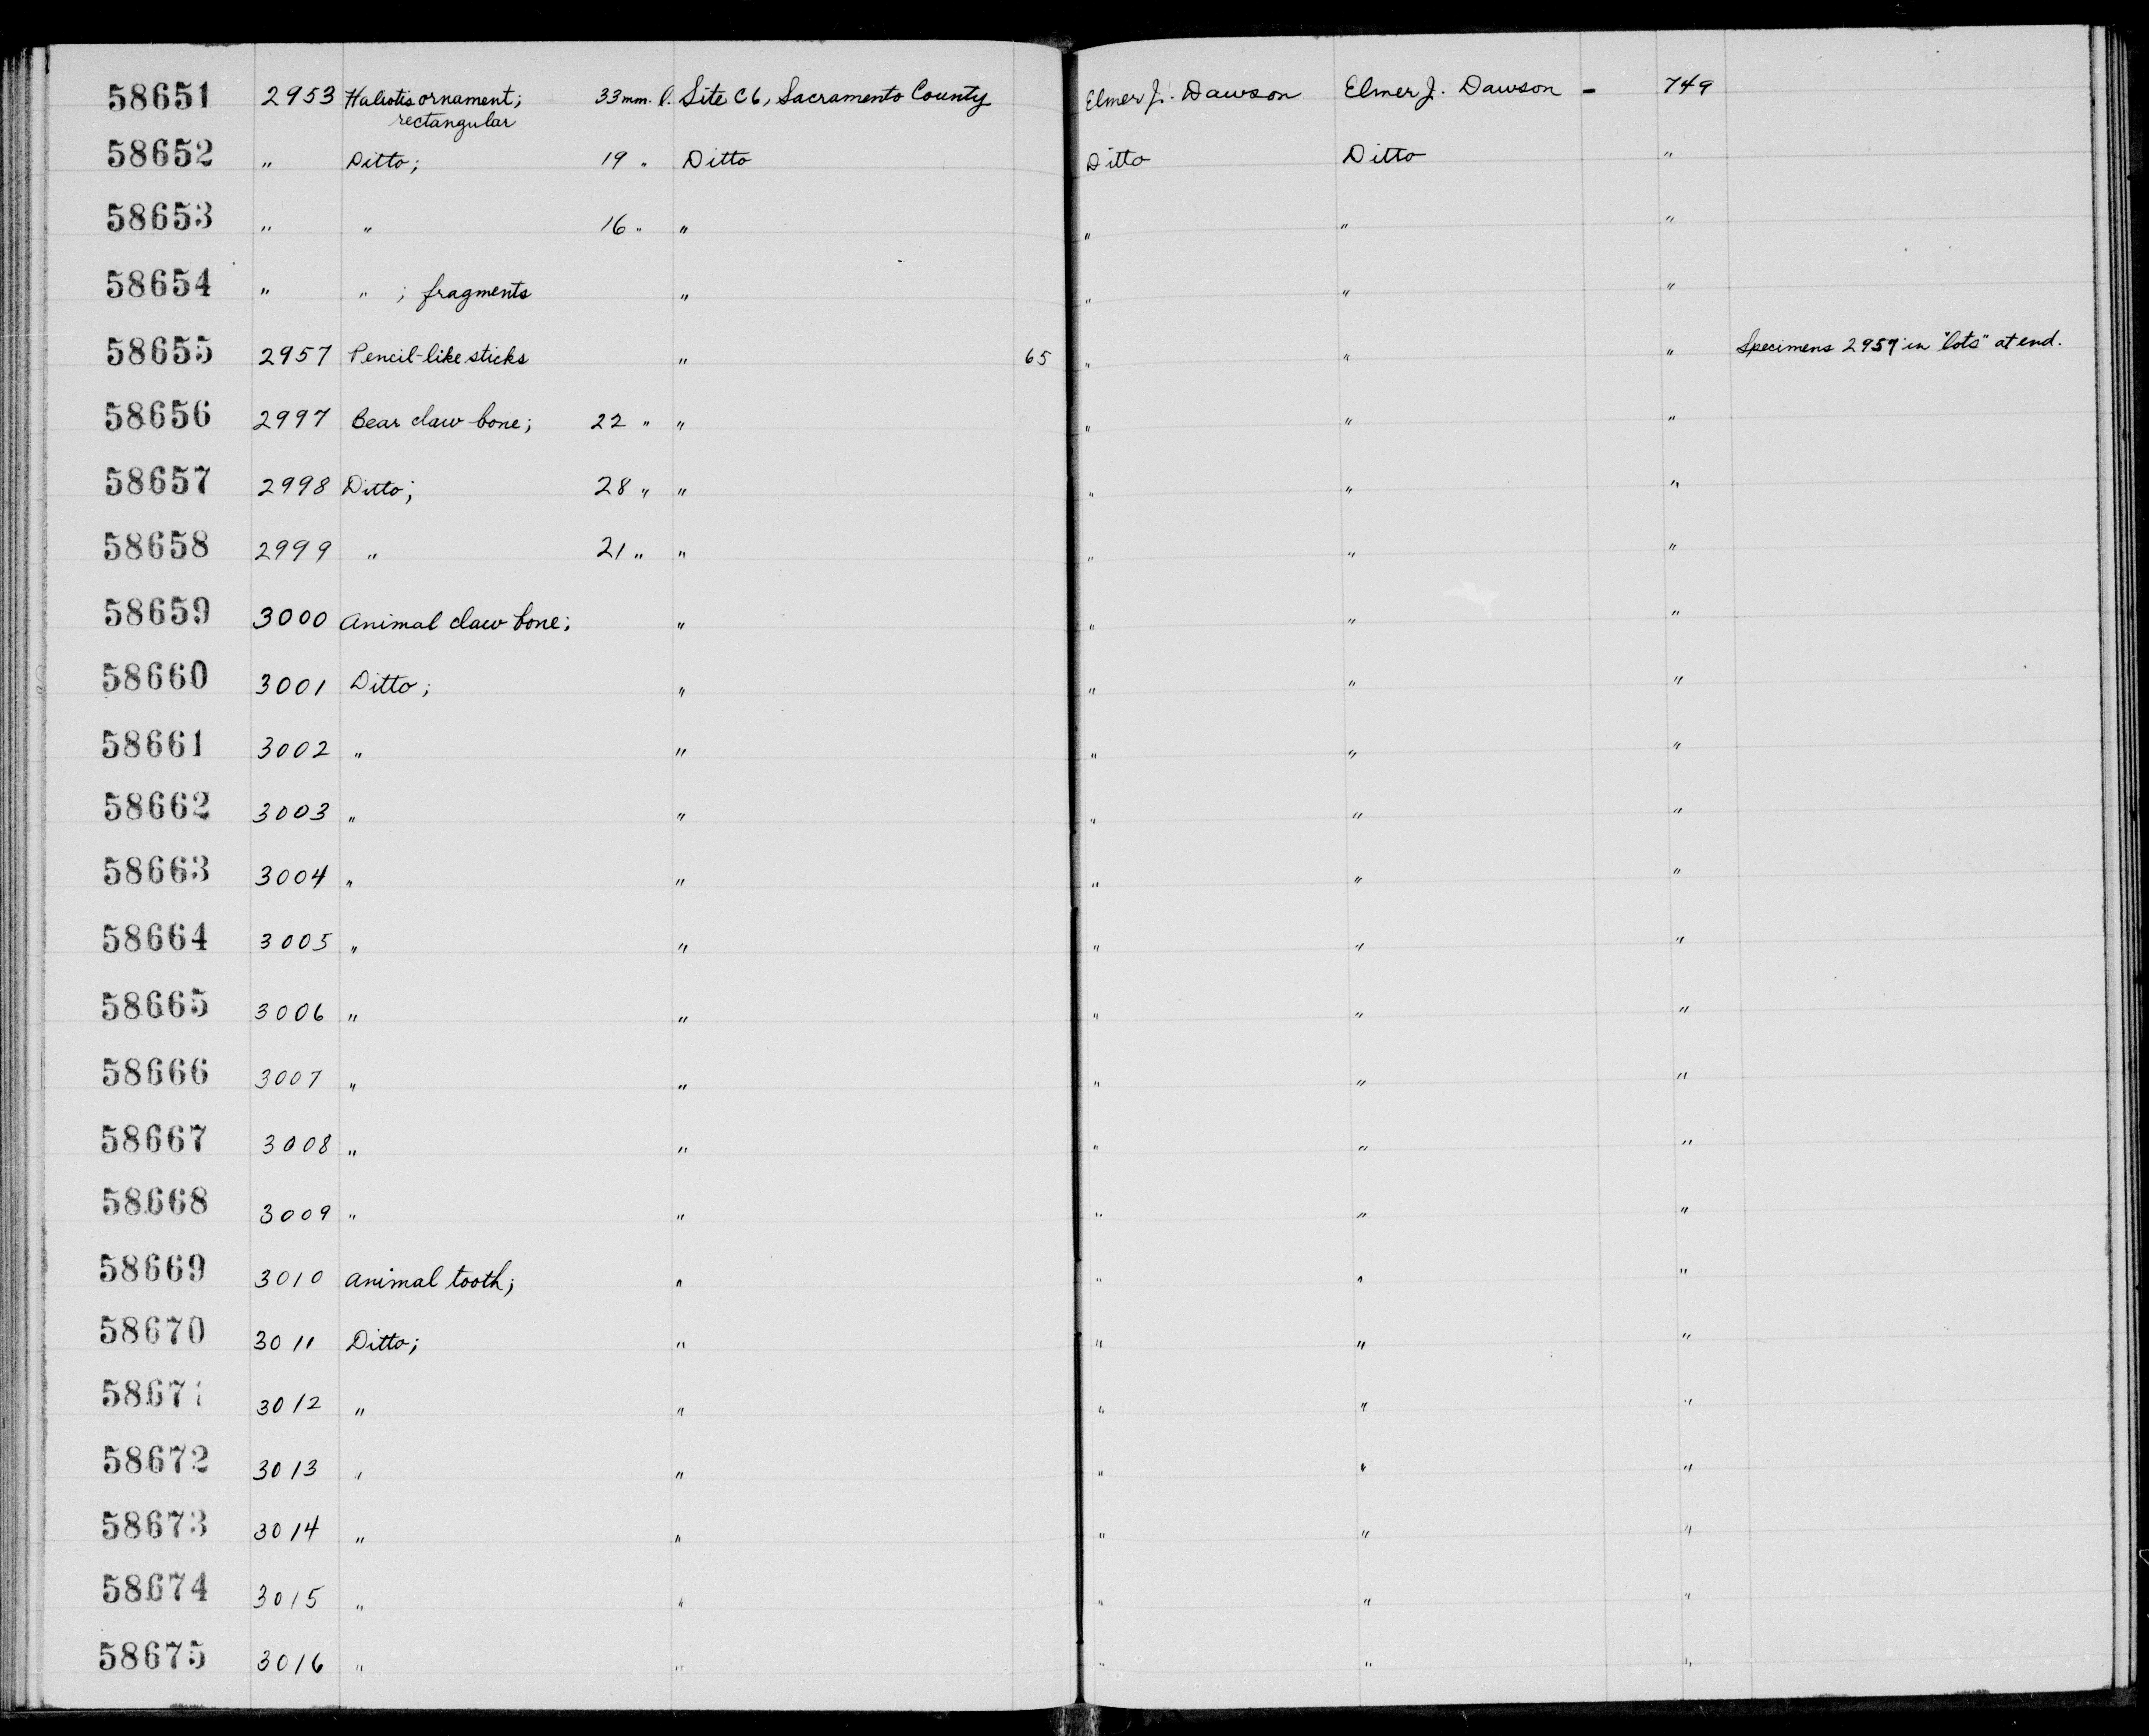 58651 2953 Haliotis ornament; 33mm. l. Site C6, Sacramento County Elmer J. Dawson Elmer J. Dawson - 749
rectangular
58652 " Ditto; 19 " Ditto Ditto Ditto "
58653 " " 16 " " " " "
58654 " " ; fragments " " " "
58655 2957 Pencil-like sticks " 65 " " " Specimens 2957 in "lots" at end.
58656 2997 Bear claw bone; 22 " " " " "
58657 2998 Ditto; 28 " " " " "
58658 2999 " 21 " " " " "
58659 3000 Animal claw bone; " " " "
58660 3001 Ditto; " " " "
58661 3002 " " " " "
58662 3003 " " " " "
58663 3004 " " " " "
58664 3005 " " " " "
58665 3006 " " " " "
58666 3007 " " " " "
58667 3008 " " " " "
58668 3009 " " " " "
58669 3010 Animal tooth; " " " "
58670 3011 Ditto; " " " "
58671 3012 " " " " "
58672 3013 " " " " "
58673 3014 " " " " "
58674 3015 " " " " "
58675 3016 " " " " "